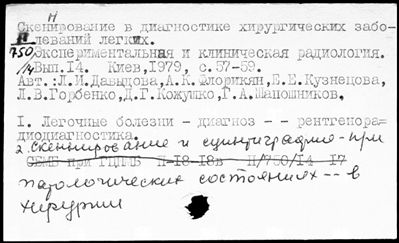 н
Скенирование в диагностике хирургических забо-
леваний легких.
750 Экспериментальная и клиническая радиология.
/14 Вып.14. Киев,1979, с.57-59.
Авт.:Л.И.Давыдова,А.К.Флорикян,Е.Е.Кузнецова,
Л.В.Горбенко,Д.Г.Кожушко,Г.А.Шапошников.
I. Легочные болезни - диагноз -- рентгенора=
диодиагностика.
2. Скеннирование и сцинтиграфия - при
ОБМБ при ГЦПМБ П-18-18в П/750/14 17
патологических состояниях -- в
хирургии